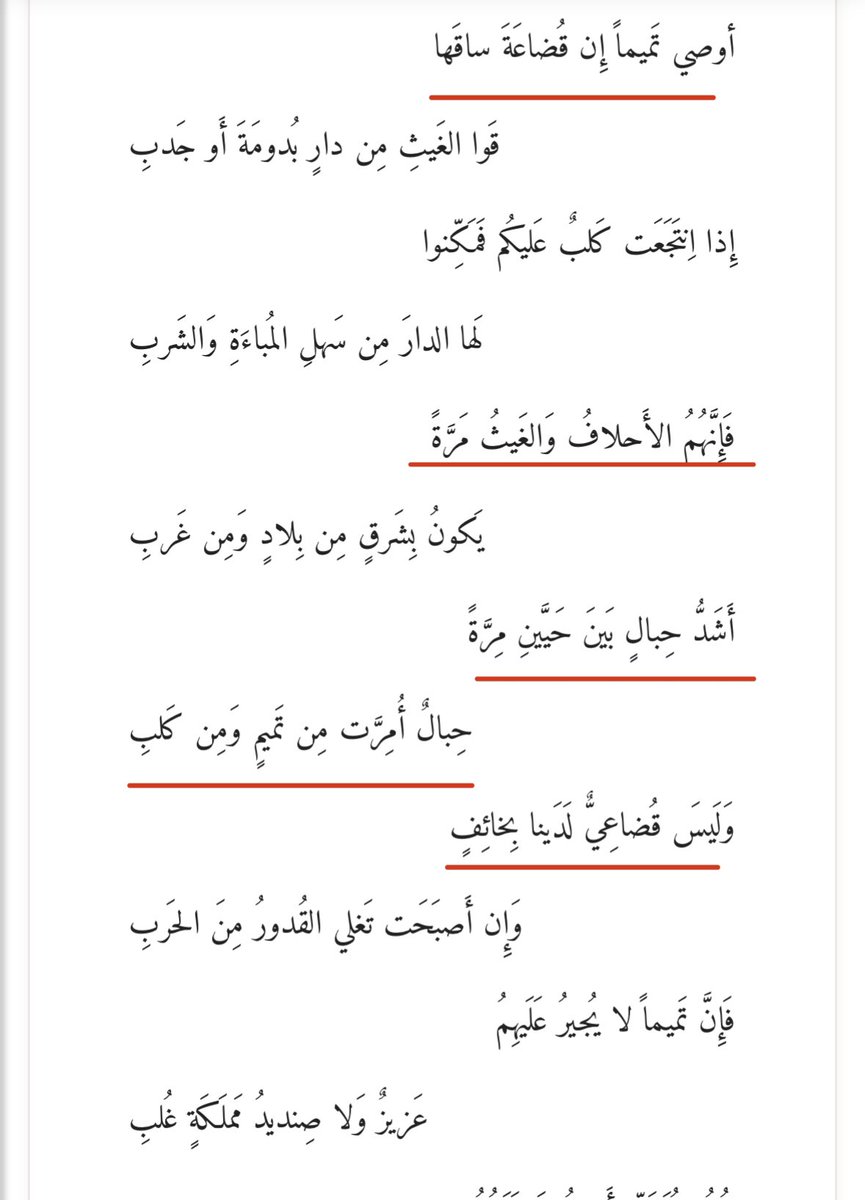 أوصي تَميماً إِن قُضاعَةَ ساقَها
قَوا الغَيثِ مِن دارٍ بُدومَةَ أَو جَدبِ
إِذا اِنتَجَعَت كَلبٌ عَلَيكُم فَمَكِّنوا
لَها الدارَ مِن سَهلِ المُباءَةِ وَالشَربِ
فَإِنَّهُمُ الأَحلافُ وَالغَيثُ مَرَّةً
يَكونُ بِشَرقٍ مِن بِلادٍ وَمِن غَربِ
أَشَدُّ حِبالٍ بَينَ حَيَّينِ مِرَّةً
حِبالٌ أُمِرَّت مِن تَميمٍ وَمِن كَلبِ
وَلَيسَ قُضاعِيٌّ لَدَينا بِخائِفٍ
وَإِن أَصبَحَت تَغلي القُدورُ مِنَ الحَربِ
فَإِنَّ تَميماً لا يُجيرُ عَلَيهِمُ
عَزيزٌ وَلا صِنديدُ مَملَكَةٍ غُلبِ